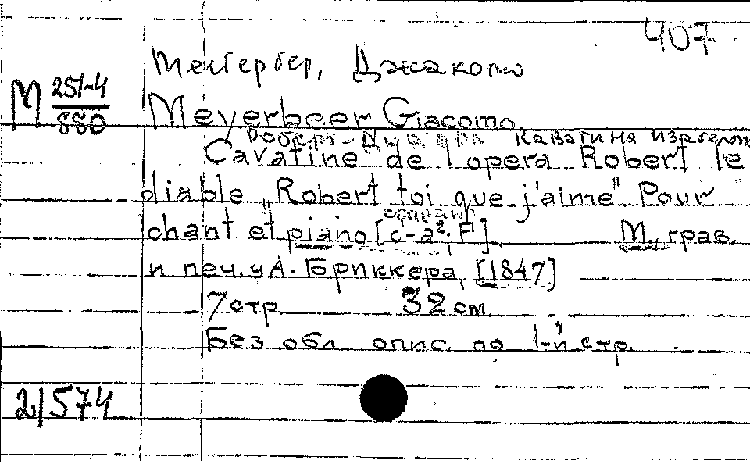 407
Мейербер, Джакомо
М 251-4
880
Meyerbeer Giacomo.
Роберт-Дьявол Каватина Изабеллы
Cavatine de l'opera Robert le
diable „Robert toi que j'aime" Pour
chant et piano [c-a². F] М., грав.
и печ. у А. Бриккера, [1847]
7 стр. 32 см.
Без обл. опис. по 1-й стр.
21574